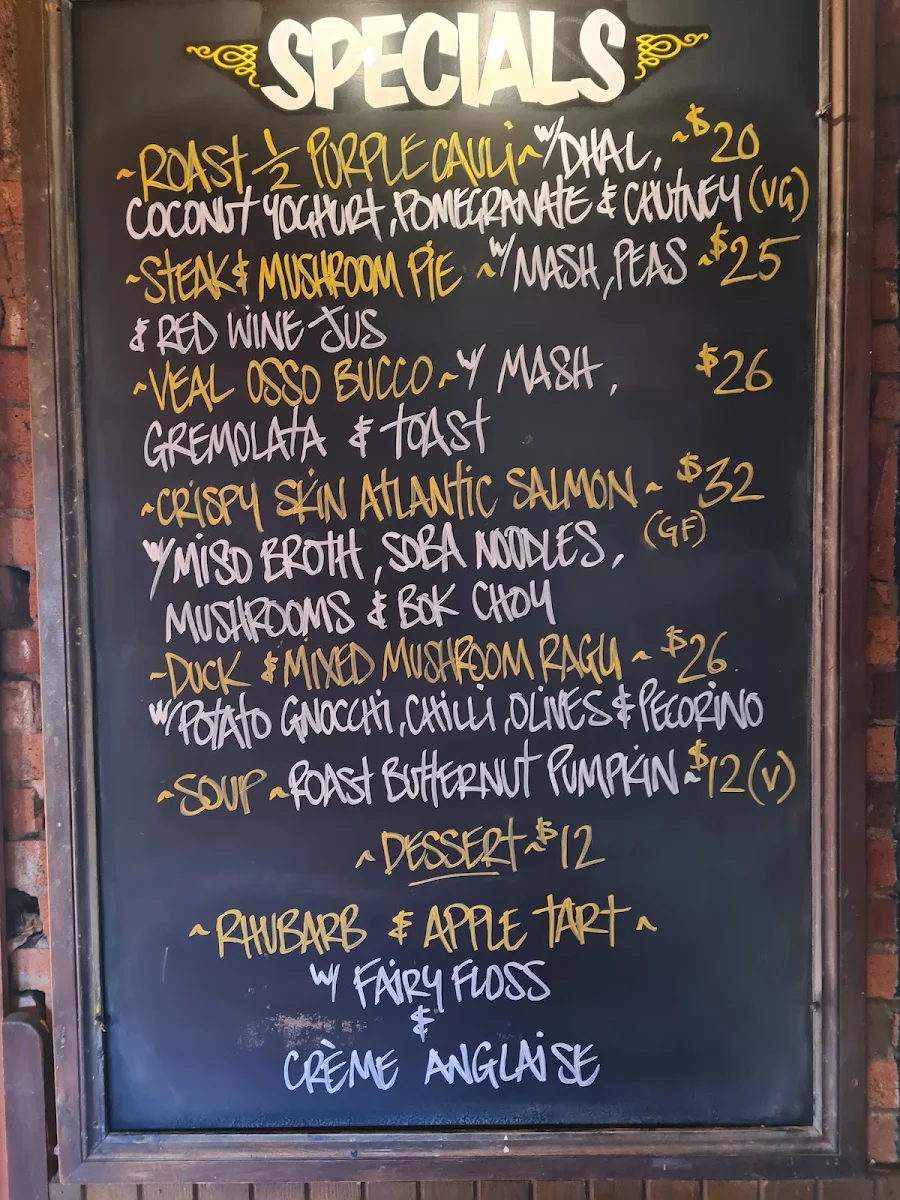 SPECIALS
~ROAST 1/2 PURPLE CAULI~ W/ DHAL, ~$20
COCONUT YOGHURT, POMEGRANATE & CHUTNEY (VG)
~STEAK & MUSHROOM PIE ~W/ MASH, PEAS ~$25
& RED WINE JUS
~VEAL OSSO BUCCO~ W/ MASH, $26
GREMOLATA & TOAST
~CRISPY SKIN ATLANTIC SALMON~ $32
W/ MISO BROTH, SOBA NOODLES, (GF)
MUSHROOMS & BOK CHOY
~DUCK & MIXED MUSHROOM RAGU ~ $26
W/ POTATO GNOCCHI, CHILLI, OLIVES & PECORINO
~SOUP ~ROAST BUTTERNUT PUMPKIN ~$12 (V)
~DESSERT~ $12
~RHUBARB & APPLE TART~
W/ FAIRY FLOSS
&
CRÈME ANGLAISE